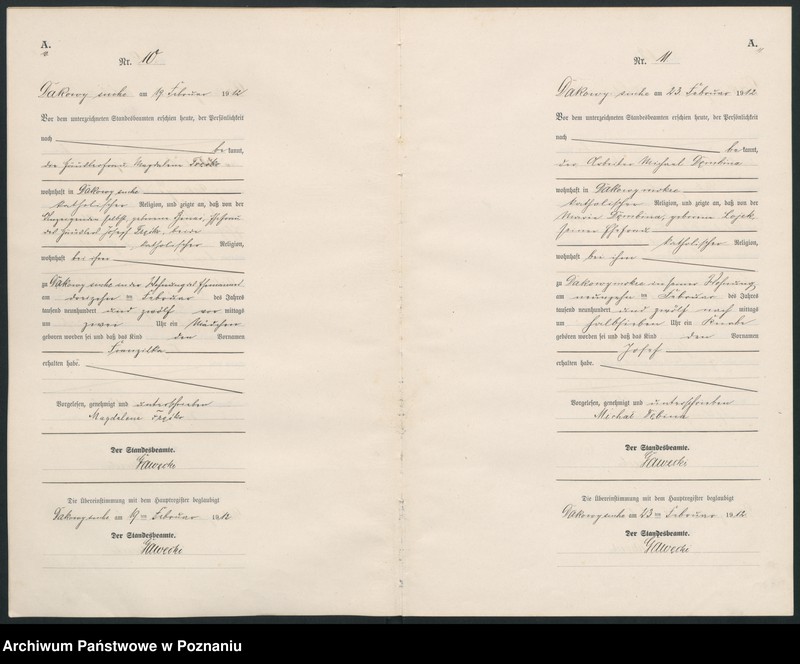 A.
Nr. 10
Dakowy suche am 19 Februar 1912
Vor dem unterzeichneten Standesbeamten erschien heute, der Persönlichkeit
nach
bekannt,
die Händlerfrau Magdalena
wohnhaft in Dakowy suche
katholischer Religion, und zeigte an, daß von der
geborene Ehefrau
des Händlers Josef
katholischer Religion,
wohnhaft bei ihr
zu Dakowy suche in der Wohnung
am dreizehn ten Februar des Jahres
tausend neunhundert und zwölf vor mittags
um zwei Uhr ein Mädchen
geboren worden sei und daß das Kind den Vornamen
erhalten habe.
Vorgelesen, genehmigt und unterschrieben
Magdalena
Der Standesbeamte.
Gawecki
Die Übereinstimmung mit dem Hauptregister beglaubigt
Dakowy suche am 19 ten Februar 1912
Der Standesbeamte.
Gawecki
A.
Nr. 11
Dakowy suche am 23. Februar 1912
Vor dem unterzeichneten Standesbeamten erschien heute, der Persönlichkeit
nach
bekannt,
der Arbeiter Michael Dembina
wohnhaft in Dakowy mokre
katholischer Religion, und zeigte an, daß von der
Maria Dembina, geborene Lojek
seiner Ehefrau
katholischer Religion,
wohnhaft bei ihm
zu Dakowy mokre in seiner Wohnung,
am neunzehn ten Februar des Jahres
tausend neunhundert und zwölf nach mittags
um halbsieben Uhr ein Knabe
geboren worden sei und daß das Kind den Vornamen
Josef
erhalten habe.
Vorgelesen, genehmigt und unterschrieben
Michał
Der Standesbeamte.
Gawecki
Die Übereinstimmung mit dem Hauptregister beglaubigt
Dakowy suche am 23 ten Februar 1912
Der Standesbeamte.
Gawecki
Archiwum Państwowe w Poznaniu